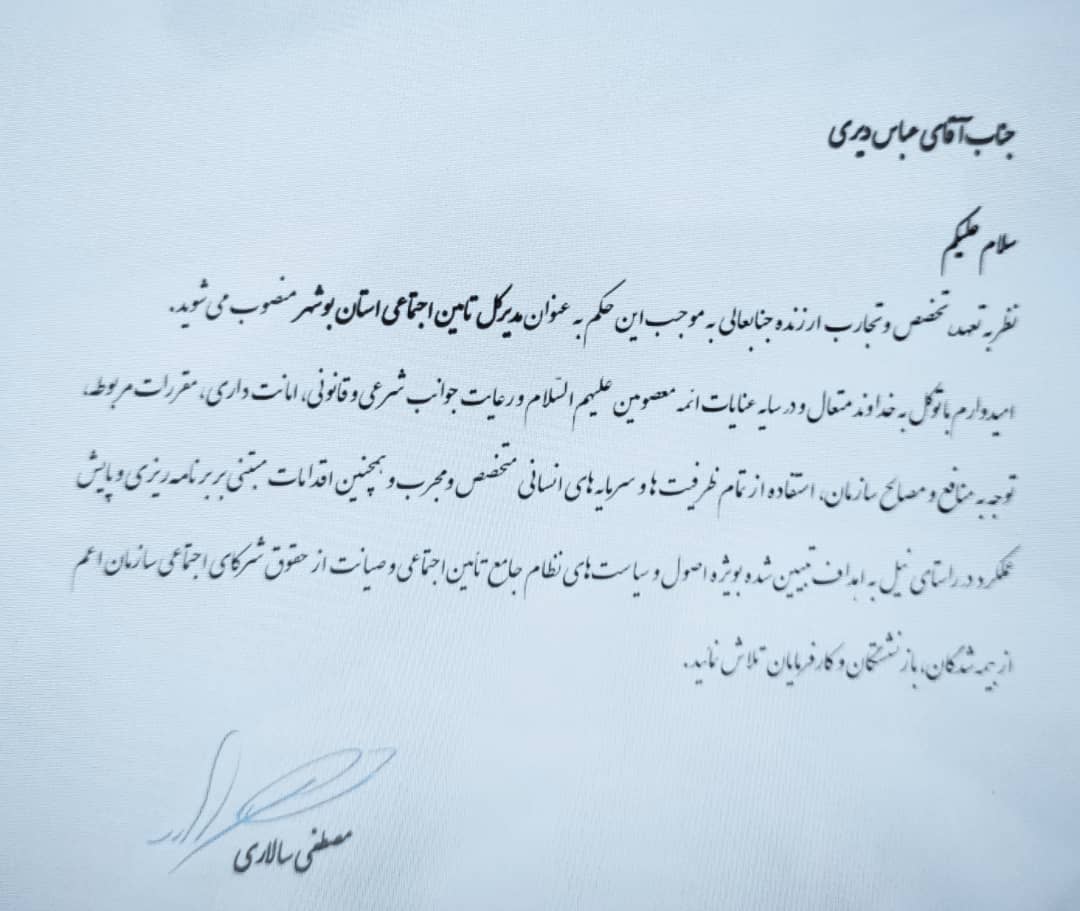 جناب آقای عباس دیری
سلام علیکم
نظر به تعهد، تخصص و تجارب ارزنده جنابعالی به موجب این حکم به عنوان مدیرکل تامین اجتماعی استان بوشهر منصوب می شوید.
امیدوارم با توکل به خداوند متعال و در سایه عنایات ائمه معصومین علیهم السّلام و رعایت جوانب شرعی و قانونی، امانت داری، مقررات مربوطه،
توجه به منافع و مصالح سازمان، استفاده از تمام ظرفیت ها و سرمایه های انسانی متخصص و مجرب و همچنین اقدامات مبتنی بر برنامه ریزی و پایش
عملکرد در راستای نیل به اهداف تبیین شده بویژه اصول و سیاست های نظام جامع تأمین اجتماعی و صیانت از حقوق شرکای اجتماعی سازمان اعم
از بیمه شدگان، بازنشستگان و کارفرمایان تلاش نمائید.
مصطفی سالاری